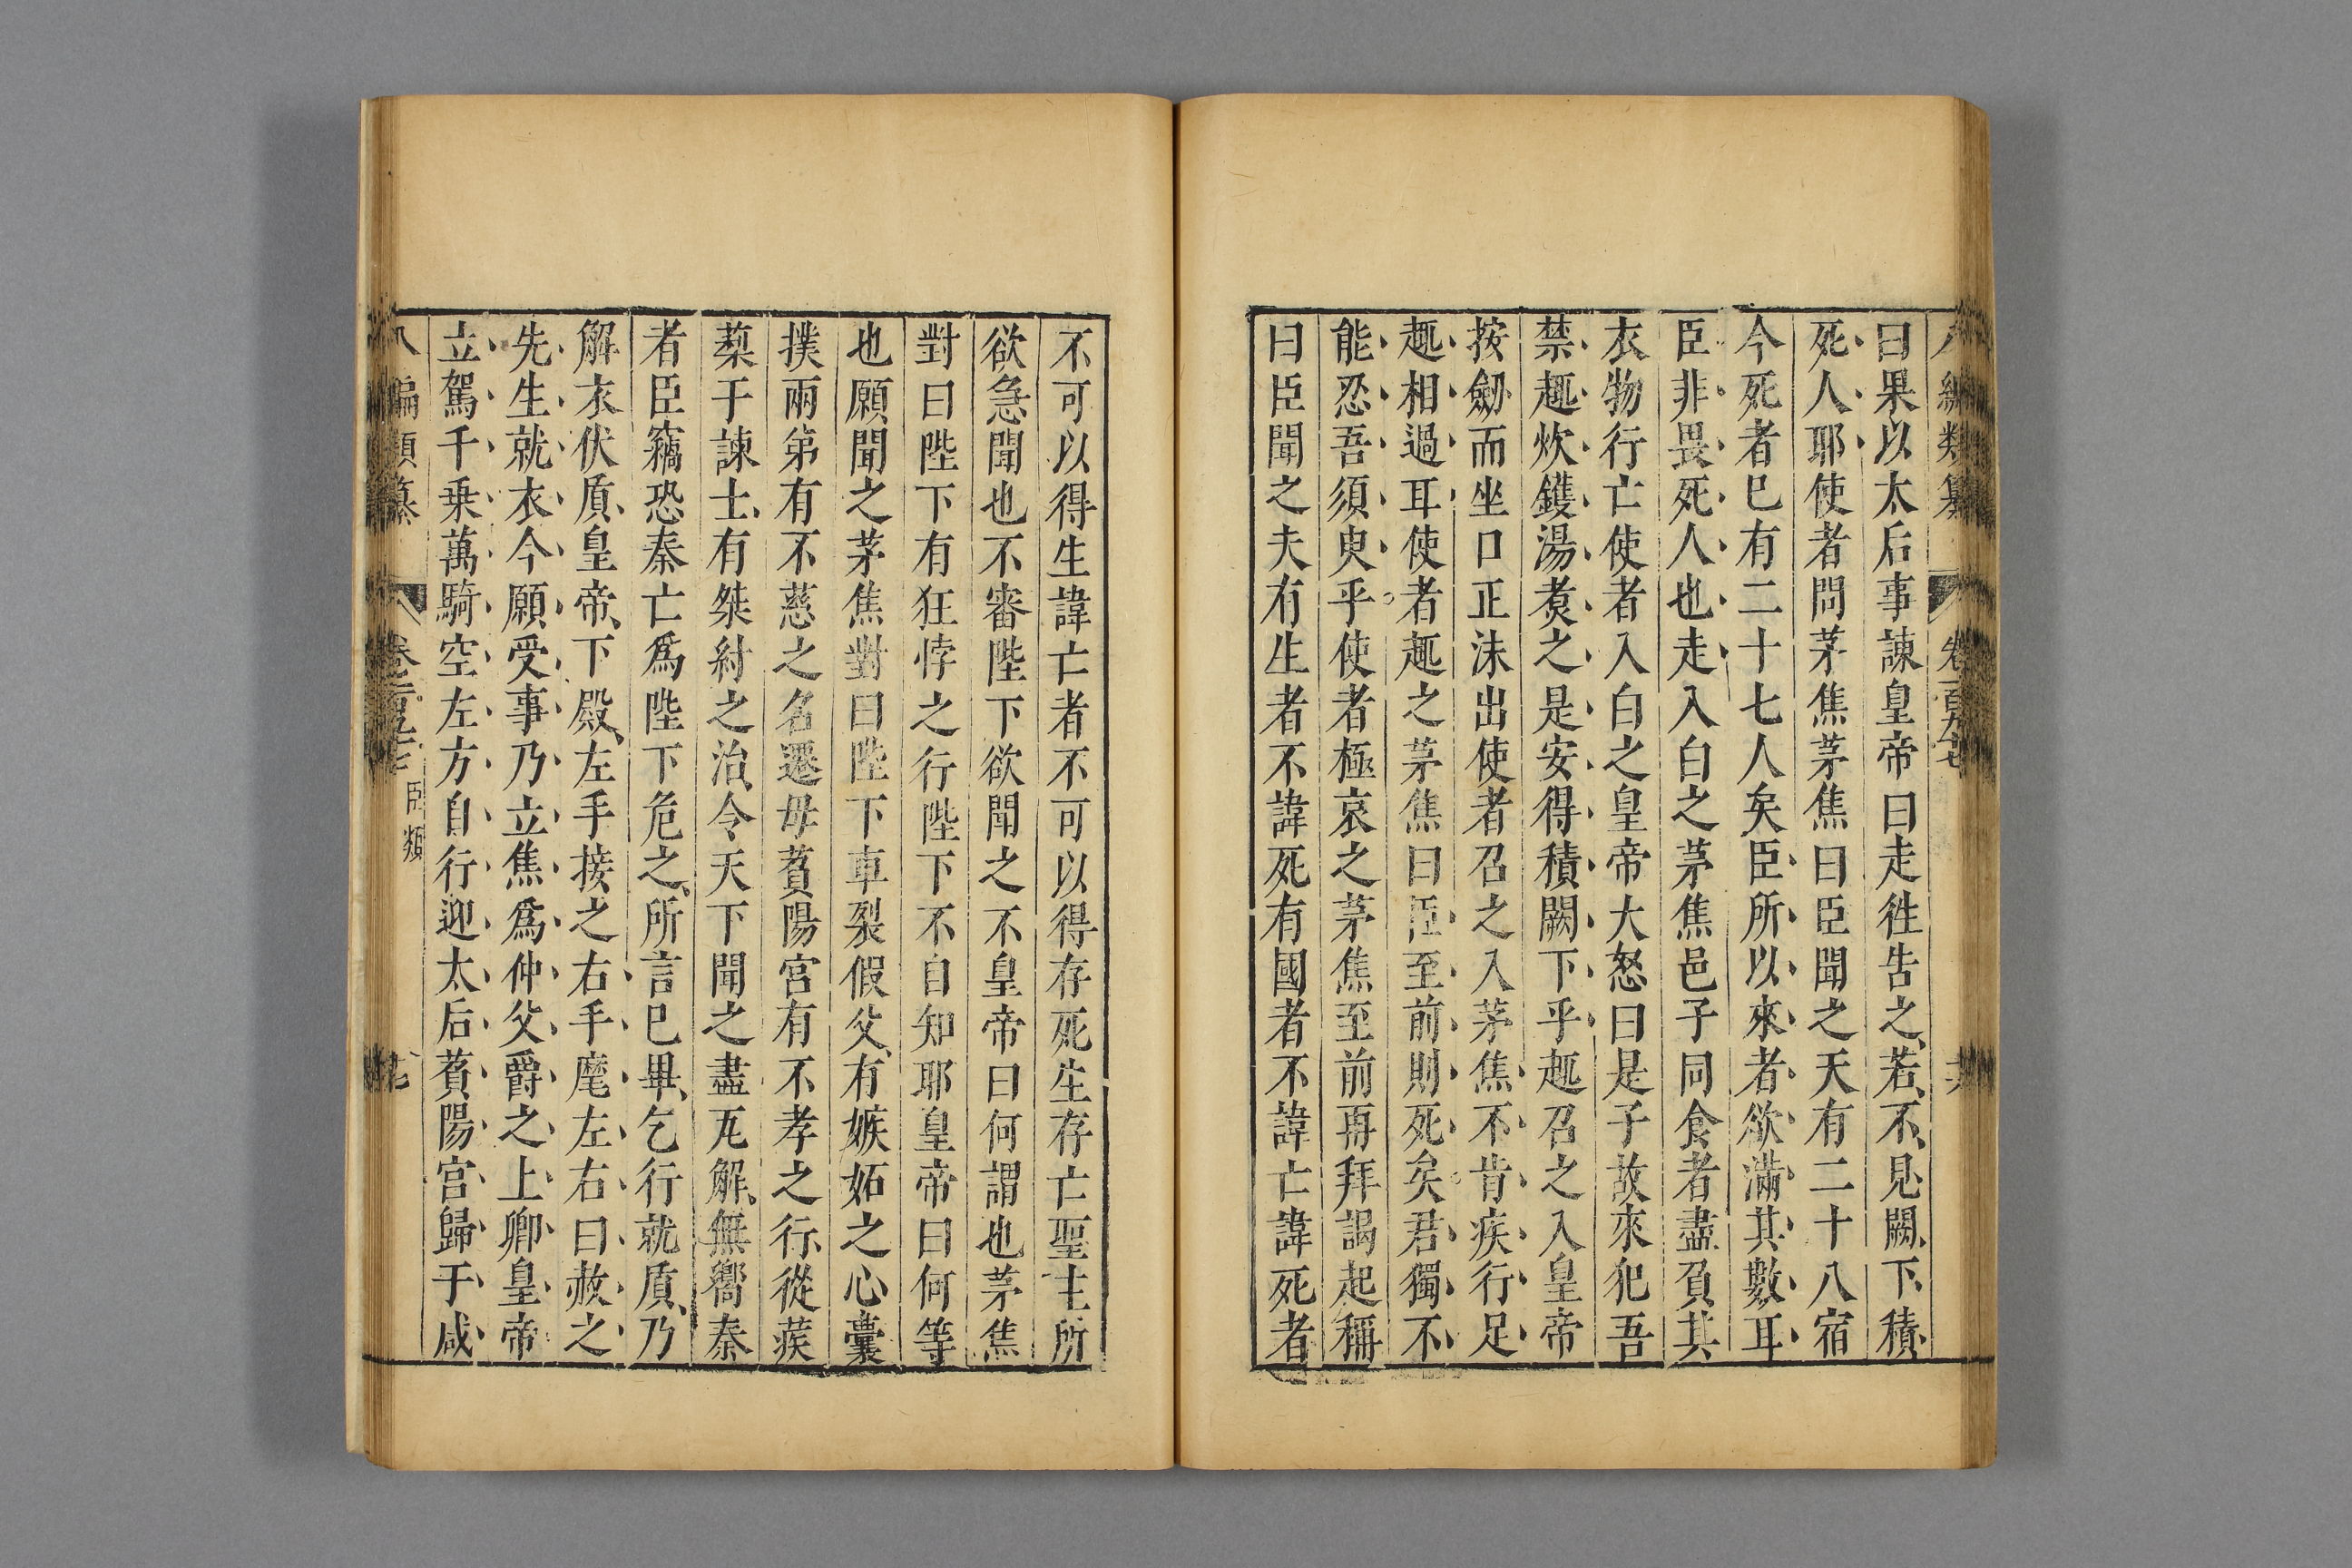 八編類纂 卷一百九十七 十六
曰果以太后事諫皇帝曰走徃告之若不見闕下積
死人耶使者問茅焦茅焦曰臣聞之天有二十八宿
今死者巳有二十七人矣臣所以來者欲滿其數耳
臣非畏死人也走入白之茅焦邑子同食者盡負其
衣物行亡使者入白之皇帝大怒曰是子故來犯吾
禁趣炊鑊湯煑之是安得積闕下乎趣召之入皇帝
按劒而坐口正沫出使者召之入茅焦不肯疾行足
趣相過耳使者趣之茅焦曰臣至前則死矣君獨不
能忍吾須臾乎使者極哀之茅焦至前再拜謁起稱
曰臣聞之夫有生者不諱死有國者不諱亡諱死者
不可以得生諱亡者不可以得存死生存亡聖主所
欲急聞也不審陛下欲聞之不皇帝曰何謂也茅焦
對曰陛下有狂悖之行陛下不自知耶皇帝曰何等
也願聞之茅焦對曰陛下車裂假父有嫉妬之心囊
撲兩弟有不慈之名遷母萯陽宮有不孝之行從蒺
蔾于諫士有桀紂之治令天下聞之盡瓦解無嚮秦
者臣竊恐秦亡爲陛下危之所言巳畢乞行就質乃
解衣伏質皇帝下殿左手接之右手麾左右曰赦之
先生就衣今願受事乃立焦爲仲父爵之上卿皇帝
立駕千乗萬騎空左方自行迎太后萯陽宮歸于咸
八編類纂 臣類